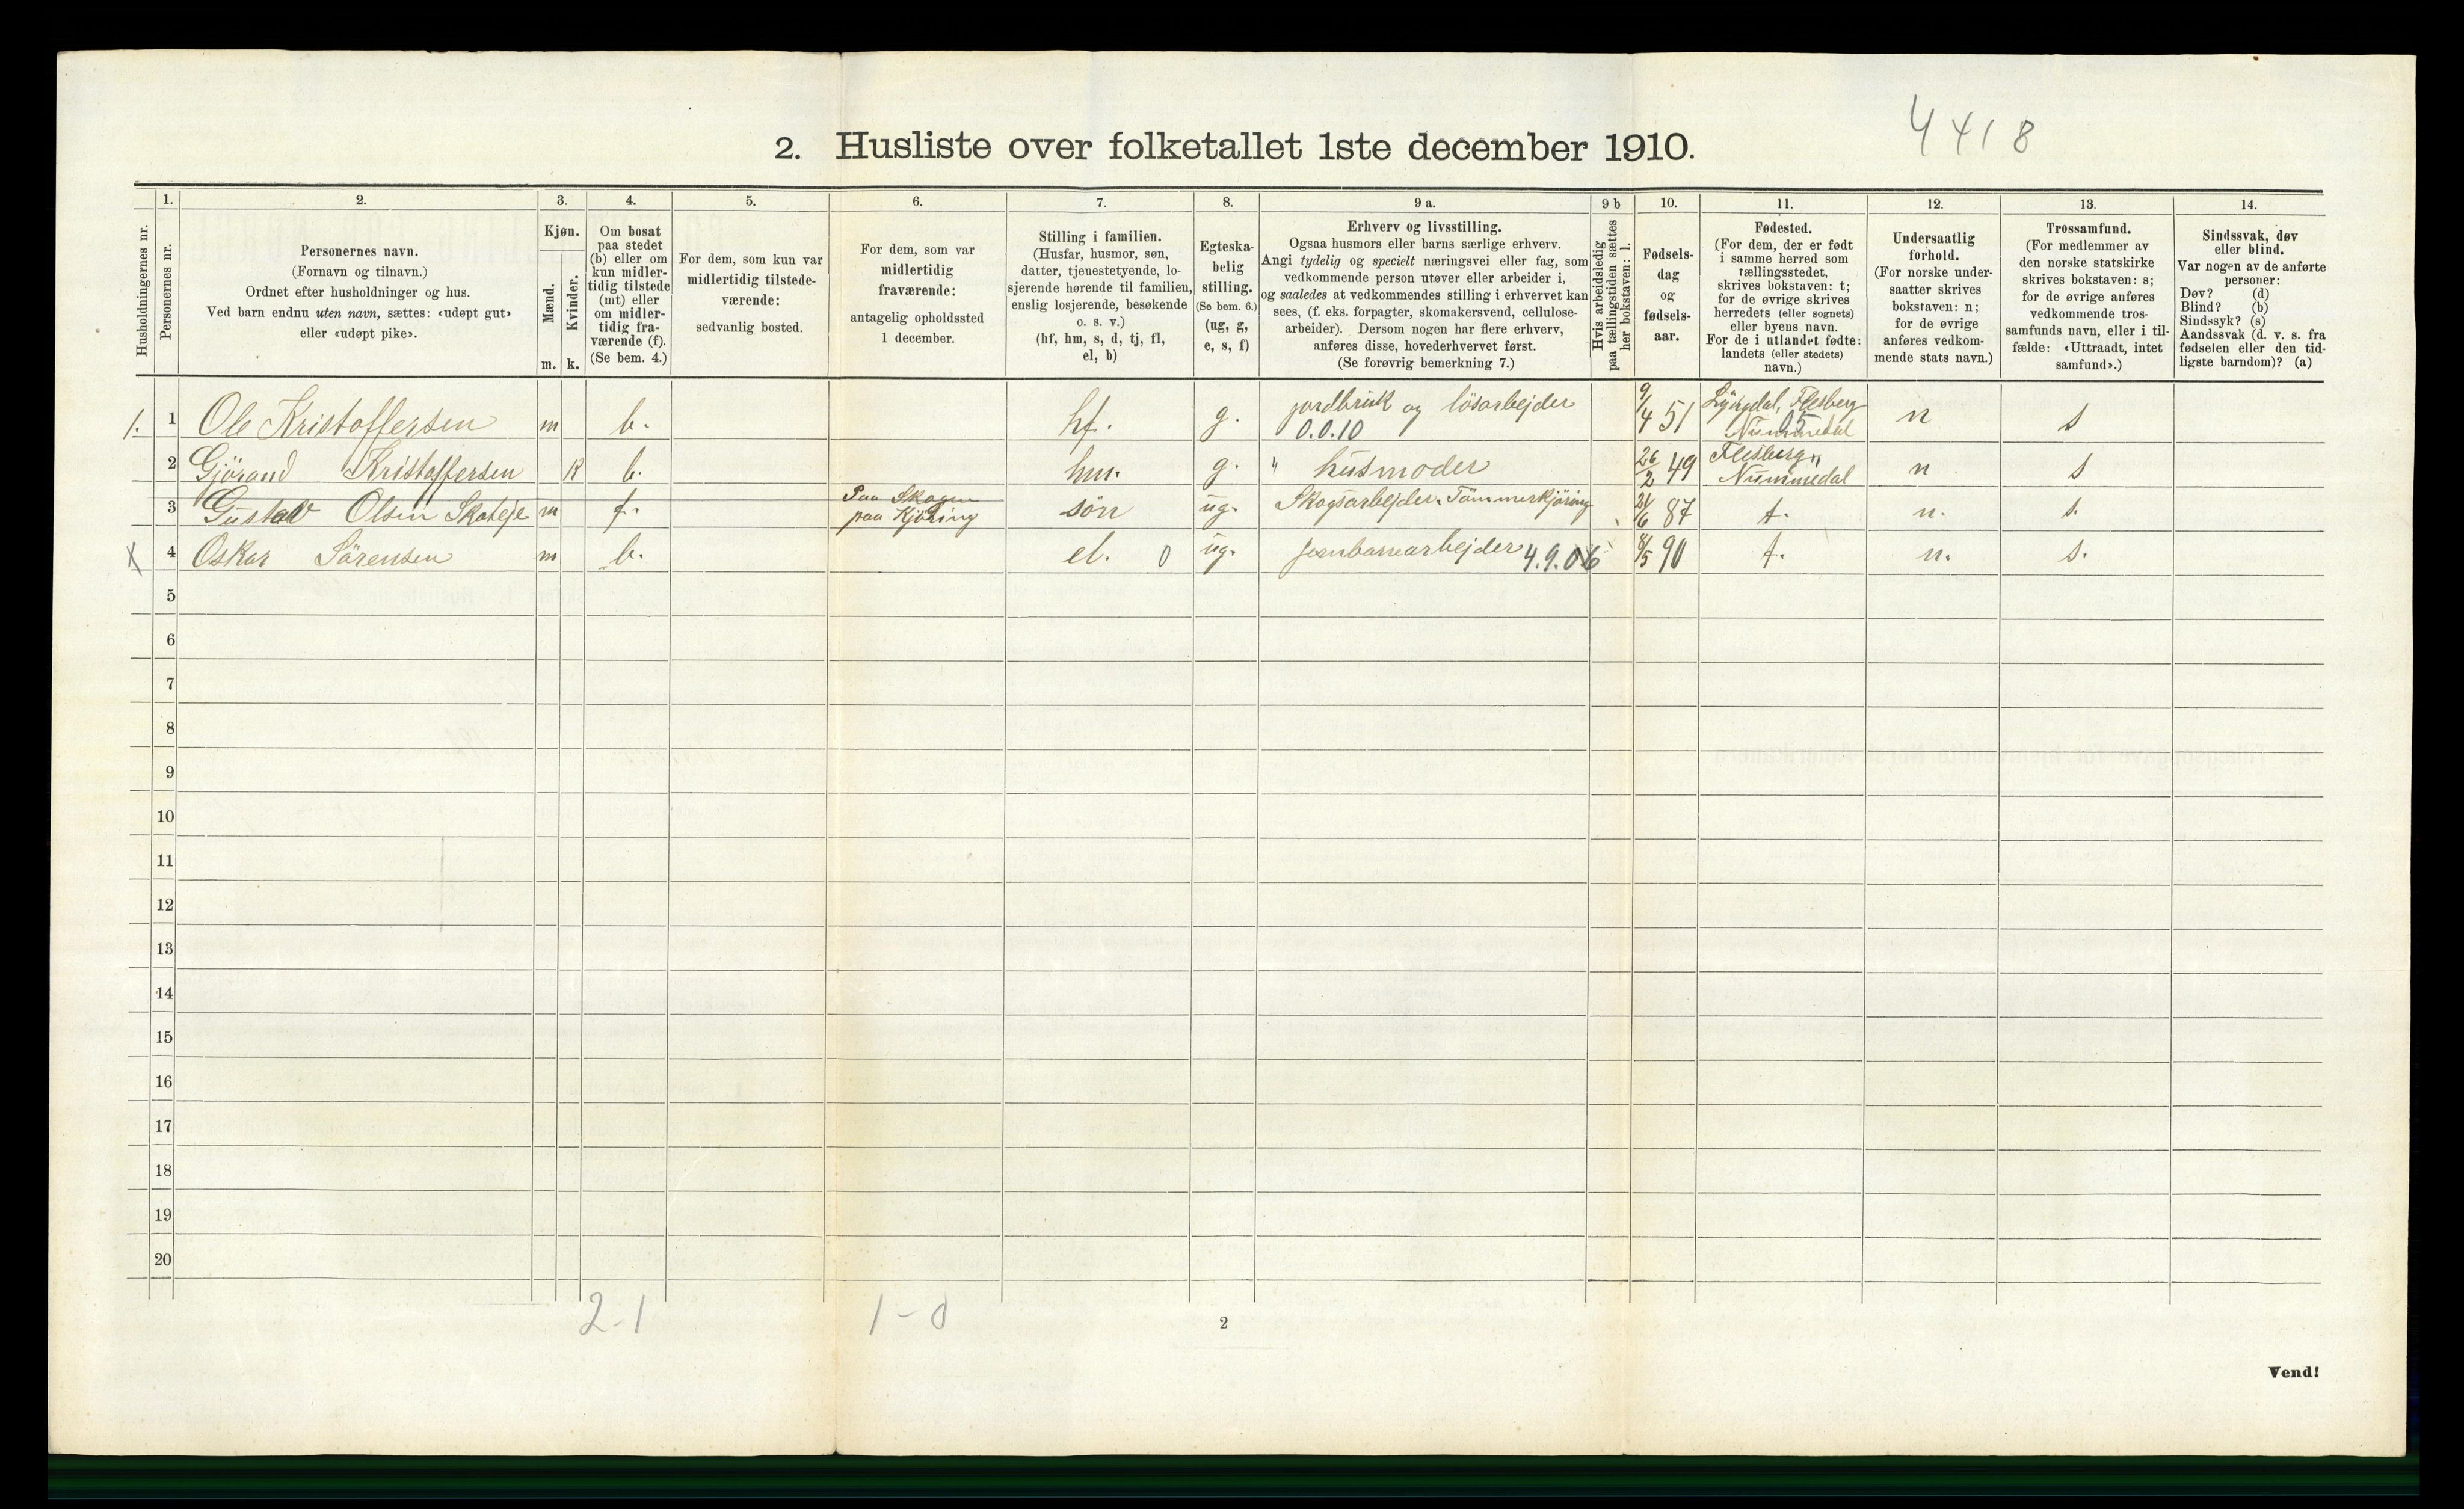 4418
2. Husliste over folketallet 1ste december 1910.
Husholdningernes nr.
1.
Personernes nr.
2.
Personernes navn.
(Fornavn og tilnavn.)
Ordnet efter husholdninger og hus.
Ved barn endnu uten navn, sættes: «udøpt gut»
eller «udøpt pike».
3.
Kjøn.
Mænd.
Kvinder.
m. k.
4.
Om bosat
paa stedet
(b) eller om
kun midler-
tidig tilstede
(mt) eller
om midler-
tidig fra-
værende (f).
(Se bem. 4.)
5.
For dem, som kun var
midlertidig tilstede-
værende:
sedvanlig bosted.
6.
For dem, som var
midlertidig
fraværende:
antagelig opholdssted
1 december.
7.
Stilling i familien.
(Husfar, husmor, søn,
datter, tjenestetyende, lo-
sjerende hørende til familien,
enslig losjerende, besøkende
o. s. v.)
(hf, hm, s, d, tj, fl,
el, b)
8.
Egteska-
belig
stilling.
(Se bem. 6.)
(ug, g,
e, s, f)
9 a.
Erhverv og livsstilling.
Ogsaa husmors eller barns særlige erhverv.
Angi tydelig og specielt næringsvei eller fag, som
vedkommende person utøver eller arbeider i,
og saaledes at vedkommendes stilling i erhvervet kan
sees, (f. eks. forpagter, skomakersvend, cellulose-
arbeider). Dersom nogen har flere erhverv,
anføres disse, hovederhvervet først.
(Se forøvrig bemerkning 7.)
9 b
Hvis arbeidsledig
paa tællingstiden sættes
her bokstaven: l.
10.
Fødsels-
dag
og
fødsels-
aar.
11.
Fødested.
(For dem, der er født
i samme herred som
tællingsstedet,
skrives bokstaven: t;
for de øvrige skrives
herredets (eller sognets)
eller byens navn.
For de i utlandet fødte:
landets (eller stedets)
navn.)
12.
Undersaatlig
forhold.
(For norske under-
saatter skrives
bokstaven: n;
for de øvrige
anføres vedkom-
mende stats navn.)
13.
Trossamfund.
(For medlemmer av
den norske statskirke
skrives bokstaven: s;
for de øvrige anføres
vedkommende tros-
samfunds navn, eller i til-
fælde: «Uttraadt, intet
samfund».)
14.
Sindssvak, døv
eller blind.
Var nogen av de anførte
personer:
Døv? (d)
Blind? (b)
Sindssyk? (s)
Aandssvak (d. v. s. fra
fødselen eller den tid-
ligste barndom)? (a)
1. 1 Ole Kristoffersen m b. hf. g. jordbruk og lösarbejder 0.0.10 9/4 51 Lyngdal, Flesberg Nummedal n s
2 Gjörand Kristoffersen K b. hm. g. " husmoder 26/2 49 Flesberg Nummedal n s
3 Gustav Olsen m f. Paa Skogen paa Kjöring sön ug. Skogsarbejder. Tömmerkjöring 87 t. n. s.
X 4 Oskar Sörensen m b. el. 0 ug. jernbanearbejder 4.9.06 8/5 90 t. n. s.
5
6
7
8
9
10
11
12
13
14
15
16
17
18
19
20
2-1 1-0
2
Vend!